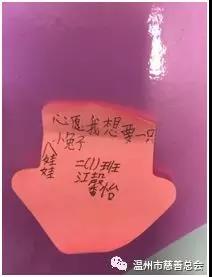 心愿我想要一只
小兔子
娃娃
二(1)班
江馨怡
温州市慈善总会